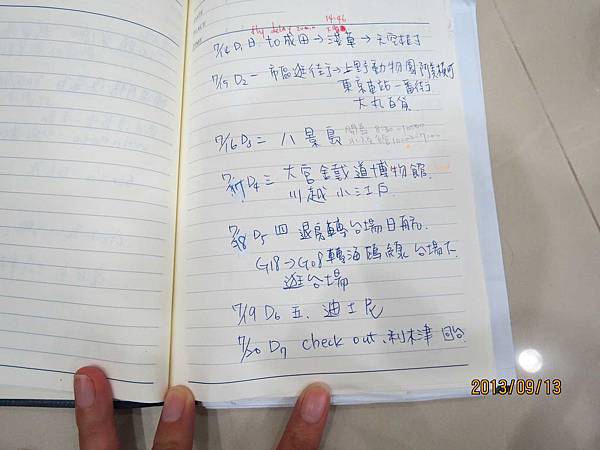 fly delay
14:46
7/14 D1 日 to 成田→淺草→天空樹下
7/15 D2 一 市區逛街→上野動物園 阿美橫町
東京車站一番街
大丸百貨
7/16 D3 二 八景島
7/17 D4 三 大宮鐵道博物館.
川越小江戶
7/18 D5 四 退房轉台場日航
G18→G08轉海鷗線 台場下.
逛台場
7/19 D6 五. 迪士尼
7/20 D7 check out、利木津 回台
2013/09/13